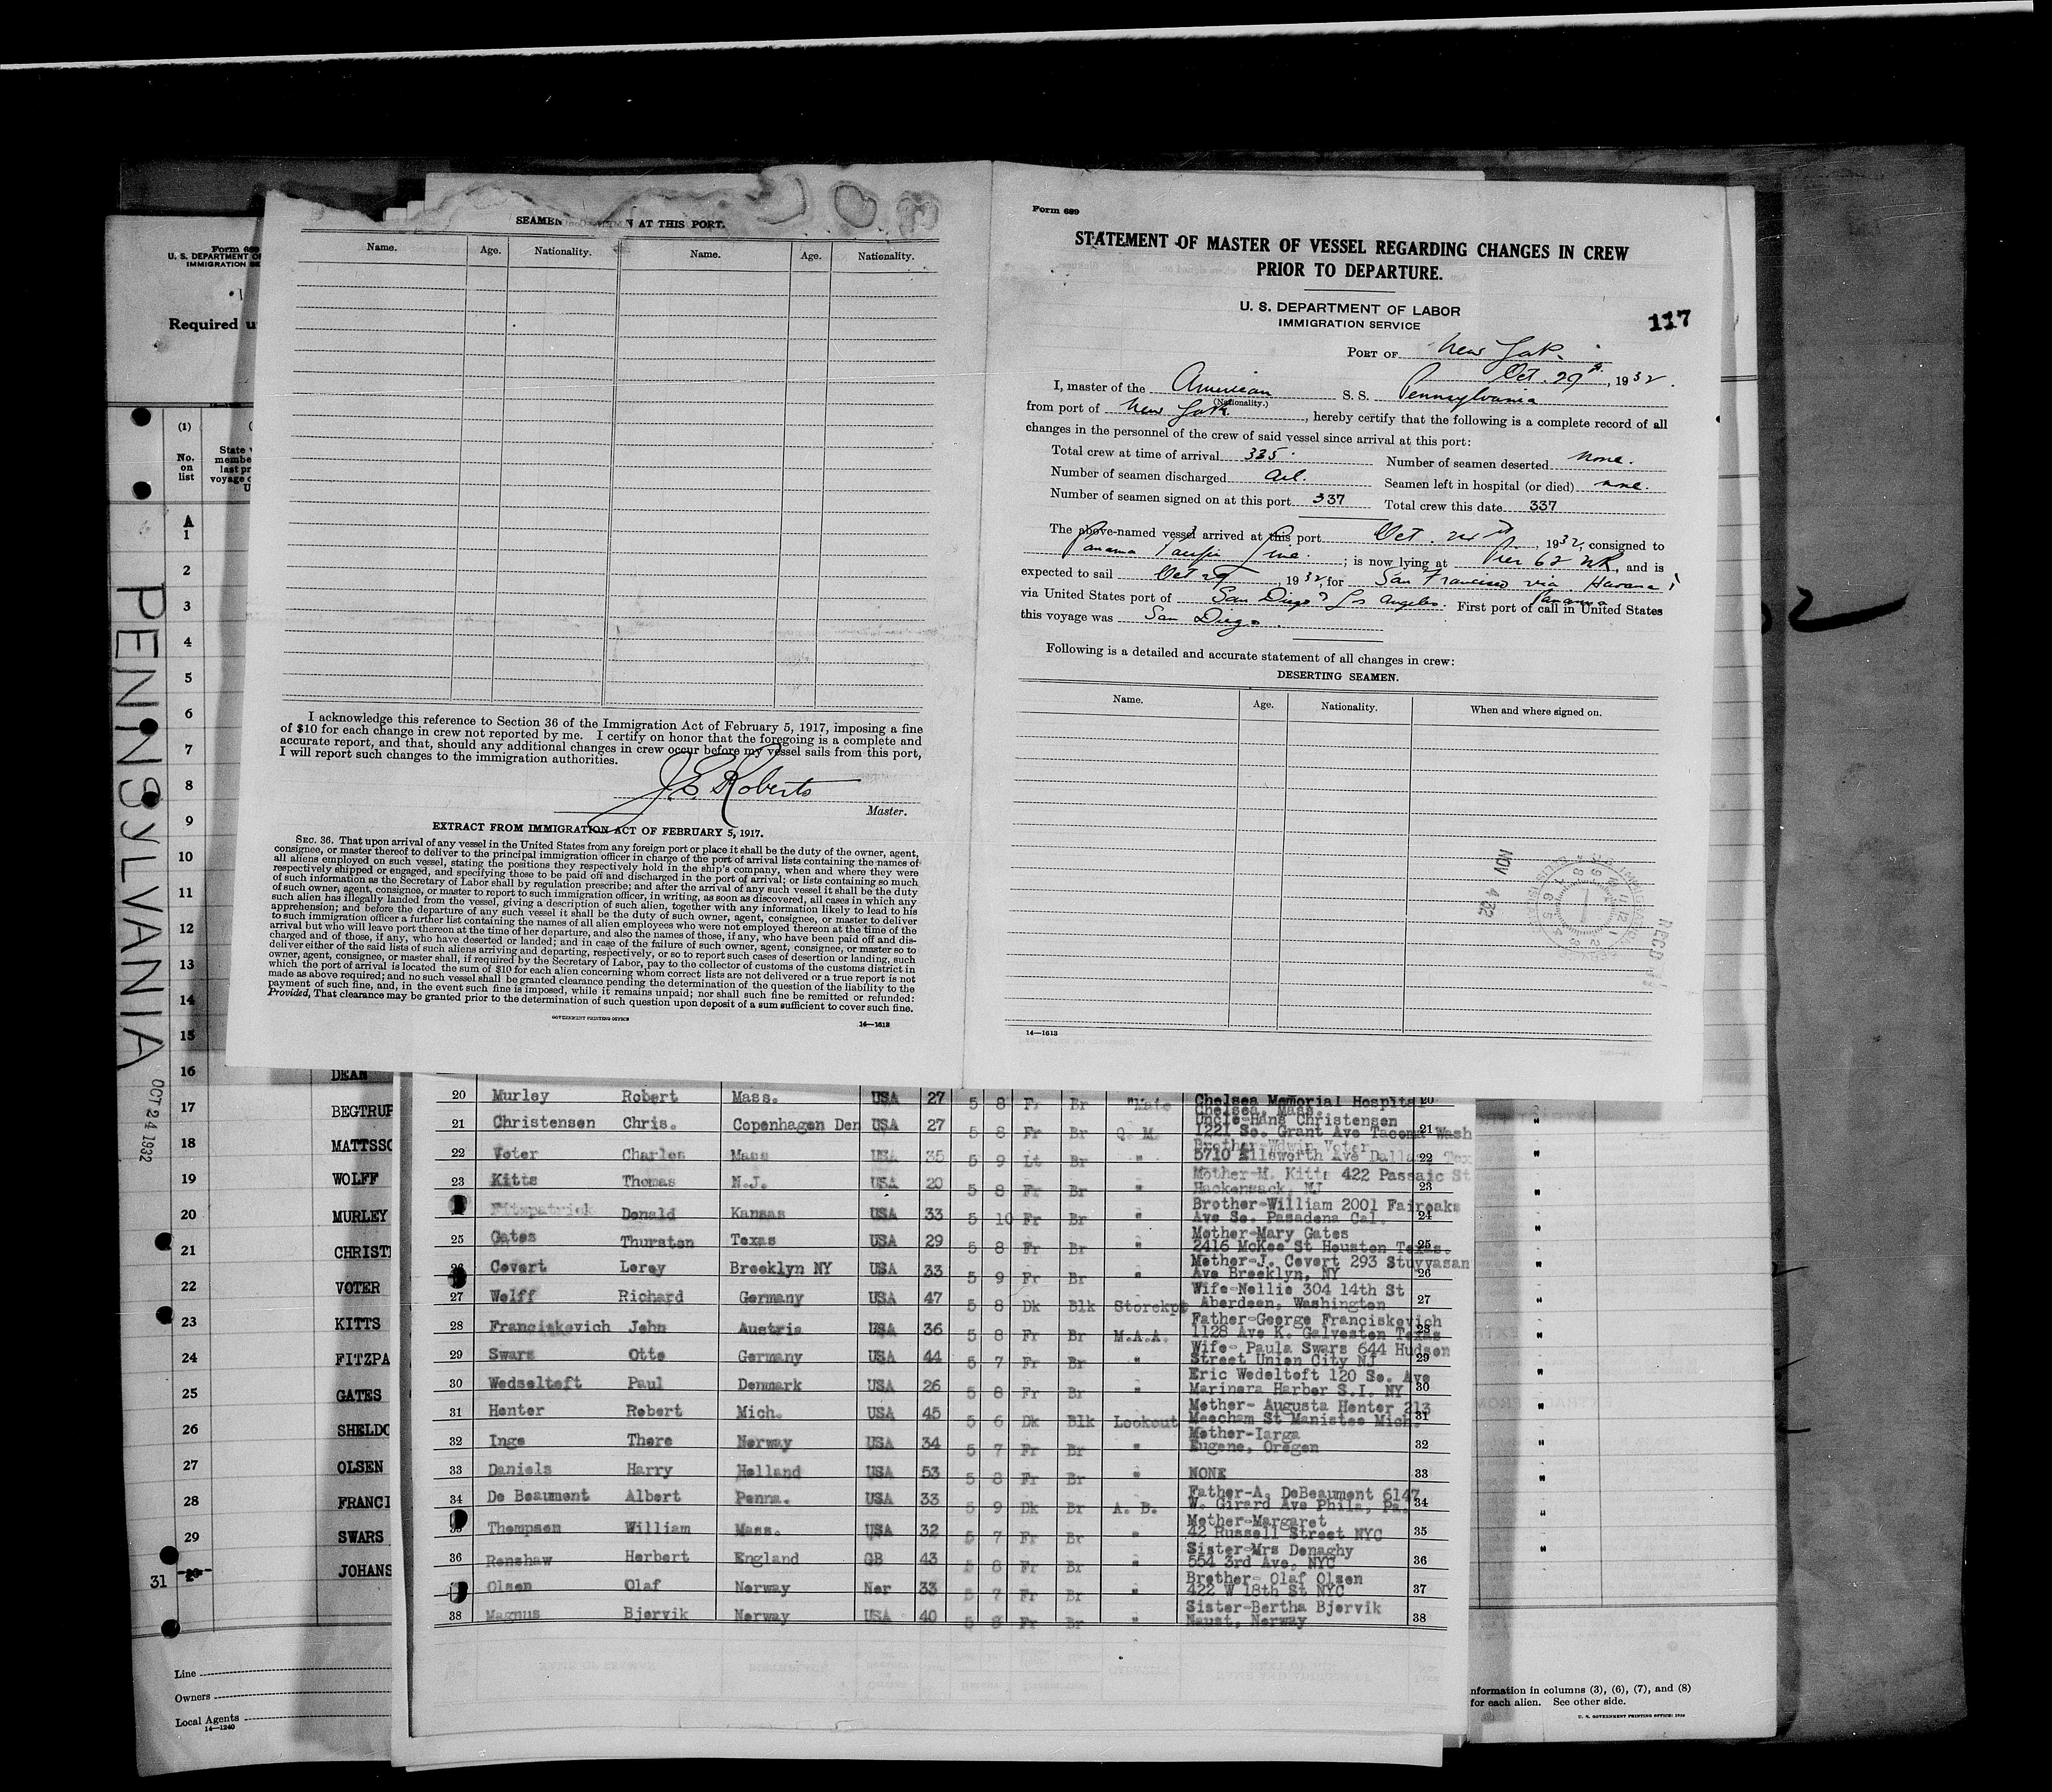 SEAMEN AT THIS PORT.
Name. Age. Nationality. Name. Age. Nationality.
I acknowledge this reference to Section 36 of the Immigration Act of February 5, 1917, imposing a fine
of $10 for each change in crew not reported by me. I certify on honor that the foregoing is a complete and
accurate report, and that, should any additional changes in crew occur before my vessel sails from this port,
I will report such changes to the immigration authorities.
J. E. Roberts
Master.
EXTRACT FROM IMMIGRATION ACT OF FEBRUARY 5, 1917.
SEC. 36. That upon arrival of any vessel in the United States from any foreign port or place it shall be the duty of the owner, agent,
consignee, or master thereof to deliver to the principal immigration officer in charge of the port of arrival lists containing the names of
all aliens employed on such vessel, stating the positions they respectively hold in the ship's company, when and where they were
respectively shipped or engaged, and specifying those to be paid off and discharged in the port of arrival; or lists containing so much
of such information as the Secretary of Labor shall by regulation prescribe; and after the arrival of any such vessel it shall be the duty
of such owner, agent, consignee, or master to report to such immigration officer, in writing, as soon as discovered, all cases in which any
such alien has illegally landed from the vessel, giving a description of such alien, together with any information likely to lead to his
apprehension; and before the departure of any such vessel it shall be the duty of such owner, agent, consignee, or master to deliver
to such immigration officer a further list containing the names of all alien employees who were not employed thereon at the time of the
arrival but who will leave port thereon at the time of her departure, and also the names of those, if any, who have been paid off and dis-
charged and of those, if any, who have deserted or landed; and in case of the failure of such owner, agent, consignee, or master so to
deliver either of the said lists of such aliens arriving and departing, respectively, or so to report such cases of desertion or landing, such
owner, agent, consignee, or master shall, if required by the Secretary of Labor, pay to the collector of customs of the customs district in
which the port of arrival is located the sum of $10 for each alien concerning whom correct lists are not delivered or a true report is not
made as above required; and no such vessel shall be granted clearance pending the determination of the question of the liability to the
payment of such fine, and, in the event such fine is imposed, while it remains unpaid; nor shall such fine be remitted or refunded:
Provided, That clearance may be granted prior to the determination of such question upon deposit of a sum sufficient to cover such fine.
GOVERNMENT PRINTING OFFICE 14—1613
Form 689
STATEMENT OF MASTER OF VESSEL REGARDING CHANGES IN CREW
PRIOR TO DEPARTURE.
U. S. DEPARTMENT OF LABOR
IMMIGRATION SERVICE
117
PORT OF New York.
Oct. 29th, 1932.
I, master of the American S. S. Pennsylvania
(Nationality.)
from port of New York, hereby certify that the following is a complete record of all
changes in the personnel of the crew of said vessel since arrival at this port:
Total crew at time of arrival 335. Number of seamen deserted None.
Number of seamen discharged All. Seamen left in hospital (or died) none.
Number of seamen signed on at this port 337 Total crew this date 337
The above-named vessel arrived at this port Oct. 24th, 1932, consigned to
Panama Pacific Line.; is now lying at Pier 62 NR, and is
expected to sail Oct 29, 1932, for San Francisco via Havana &
Panama
via United States port of San Diego & Los Angeles. First port of call in United States
this voyage was San Diego.
Following is a detailed and accurate statement of all changes in crew:
DESERTING SEAMEN.
Name. Age. Nationality. When and where signed on.
NOV 4 32
REC'D
14—1613
Form 689
U. S. DEPARTMENT OF
IMMIGRATION SE
Required u
(1)
No.
on
list
State
membe
last pr
voyage
U
PENNSYLVANIA
OCT 24 1932
A
1
2
3
4
5
6
7
8
9
10
11
12
13
14
15
16 DEAN
17 BEGTRUP
18 MATTSSO
19 WOLFF
20 MURLEY
21 CHRIST
22 VOTER
23 KITTS
24 FITZPA
25 GATES
26 SHELDO
27 OLSEN
28 FRANCI
29 SWARS
31 JOHANS
Line
Owners
Local Agents
14—1240
20 Murley Robert Mass. USA 27 5 8 Fr Br "Mate Chelsea Memorial Hospital 20
Chelsea, Mass.
21 Christensen Chris. Copenhagen Den USA 27 5 8 Fr Br Q. M. Uncle-Hans Christensen
1221 So. Grant Ave Tacoma Wash 21
22 Voter Charles Mass USA 35 5 9 Lt Br " Brother-Edwin Voter
5710 Ellsworth Ave Dallas Tex 22
23 Kitts Thomas N.J. USA 20 5 8 Fr Br " Mother-M. Kitts 422 Passaic St
Hackensack, NJ 23
Fitzpatrick Donald Kansas USA 33 5 10 Fr Br " Brother-William 2001 Fairoaks
Ave So. Pasadena Cal. 24
25 Gates Thurston Texas USA 29 5 8 Fr Br " Mother-Mary Gates
2416 McKee St Houston Texas. 25
26 Covert Leroy Brooklyn NY USA 33 5 9 Fr Br " Mother-J. Covert 293 Stuyvasan
Ave Brooklyn, NY 26
27 Wolff Richard Germany USA 47 5 8 Dk Blk Storekpr Wife-Nellie 304 14th St
Aberdeen, Washington 27
28 Franciskovich John Austria USA 36 5 8 Fr Br M.A.A. Father-George Franciskovich
1128 Ave K. Galveston Texas 28
29 Swars Otto Germany USA 44 5 7 Fr Br " Wife- Paula Swars 644 Hudson
Street Union City NJ 29
30 Wedseltoft Paul Denmark USA 26 5 8 Fr Br " Eric Wedeltoft 120 So. Ave
Mariners Harbor S.I. NY 30
31 Henter Robert Mich. USA 45 5 6 Dk Blk Lookout Mother- Augusta Henter 213
Meecham St Manistee Mich. 31
32 Inge Thore Norway USA 34 5 7 Fr Br " Mother-Iarga
Eugene, Oregon 32
33 Daniels Harry Holland USA 53 5 8 Fr Br " NONE 33
34 De Beaumont Albert Penna. USA 33 5 9 Dk Br A. B. Father-A. DeBeaumont 6147
W. Girard Ave Phila, Pa. 34
35 Thompson William Mass. USA 32 5 7 Fr Br " Mother-Margaret
42 Russell Street NYC 35
36 Renshaw Herbert England GB 43 5 8 Fr Br " Sister-Mrs Denaghy
554 3rd Ave, NYC 36
Olsen Olaf Norway Nor 33 5 7 Fr Br " Brother- Olaf Olsen
422 W 18th St NYC 37
38 Magnus Bjorvik Norway USA 40 5 8 Fr Br " Sister-Bertha Bjorvik
Naust, Norway 38
nformation in columns (3), (6), (7), and (8)
for each alien. See other side.
U. S. GOVERNMENT PRINTING OFFICE: 1930